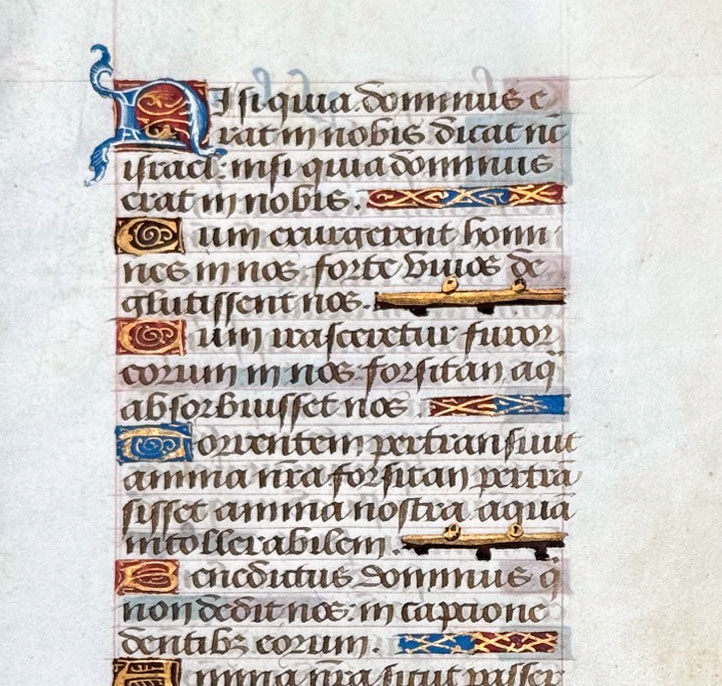 Nisi quia dominus e
rat in nobis dicat nc̄
israel: nisi quia dominus
erat in nobis.
Cum exurgerent homi
nes in nos forte vivos de
glutissent nos.
Cum irasceretur furor
eorum in nos forsitan aq̄
absorbuisset nos
Torrentem pertransivit
anima nr̄a forsitan pertrā
sisset anima nostra aquā
intollerabilem.
Benedictus dominus q̄
non dedit nos: in captione
dentibꝫ eorum.
Anima nr̄a sicut passer